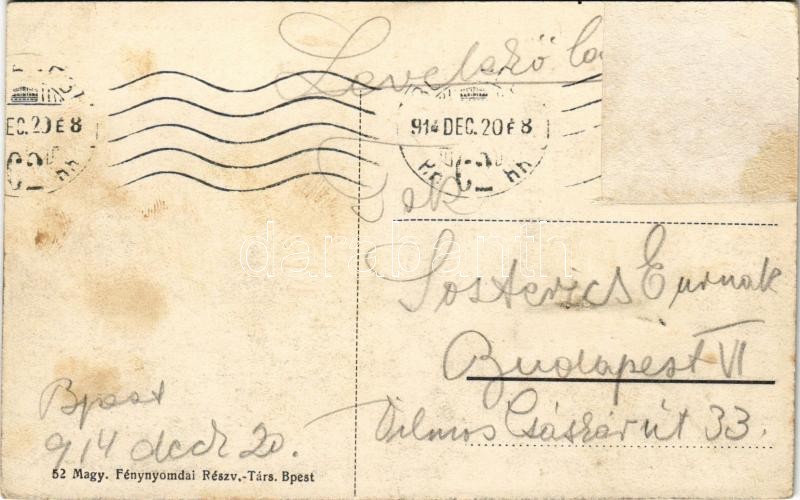 Levelező la
914 DEC. 20 É 8
Tek
Sosterics Ernnak
Budapest VI
Vilmos Császár út 33.
Bpest
914 dec 20.
52 Magy. Fénynyomdai Részv.-Társ. Bpest
darabanth